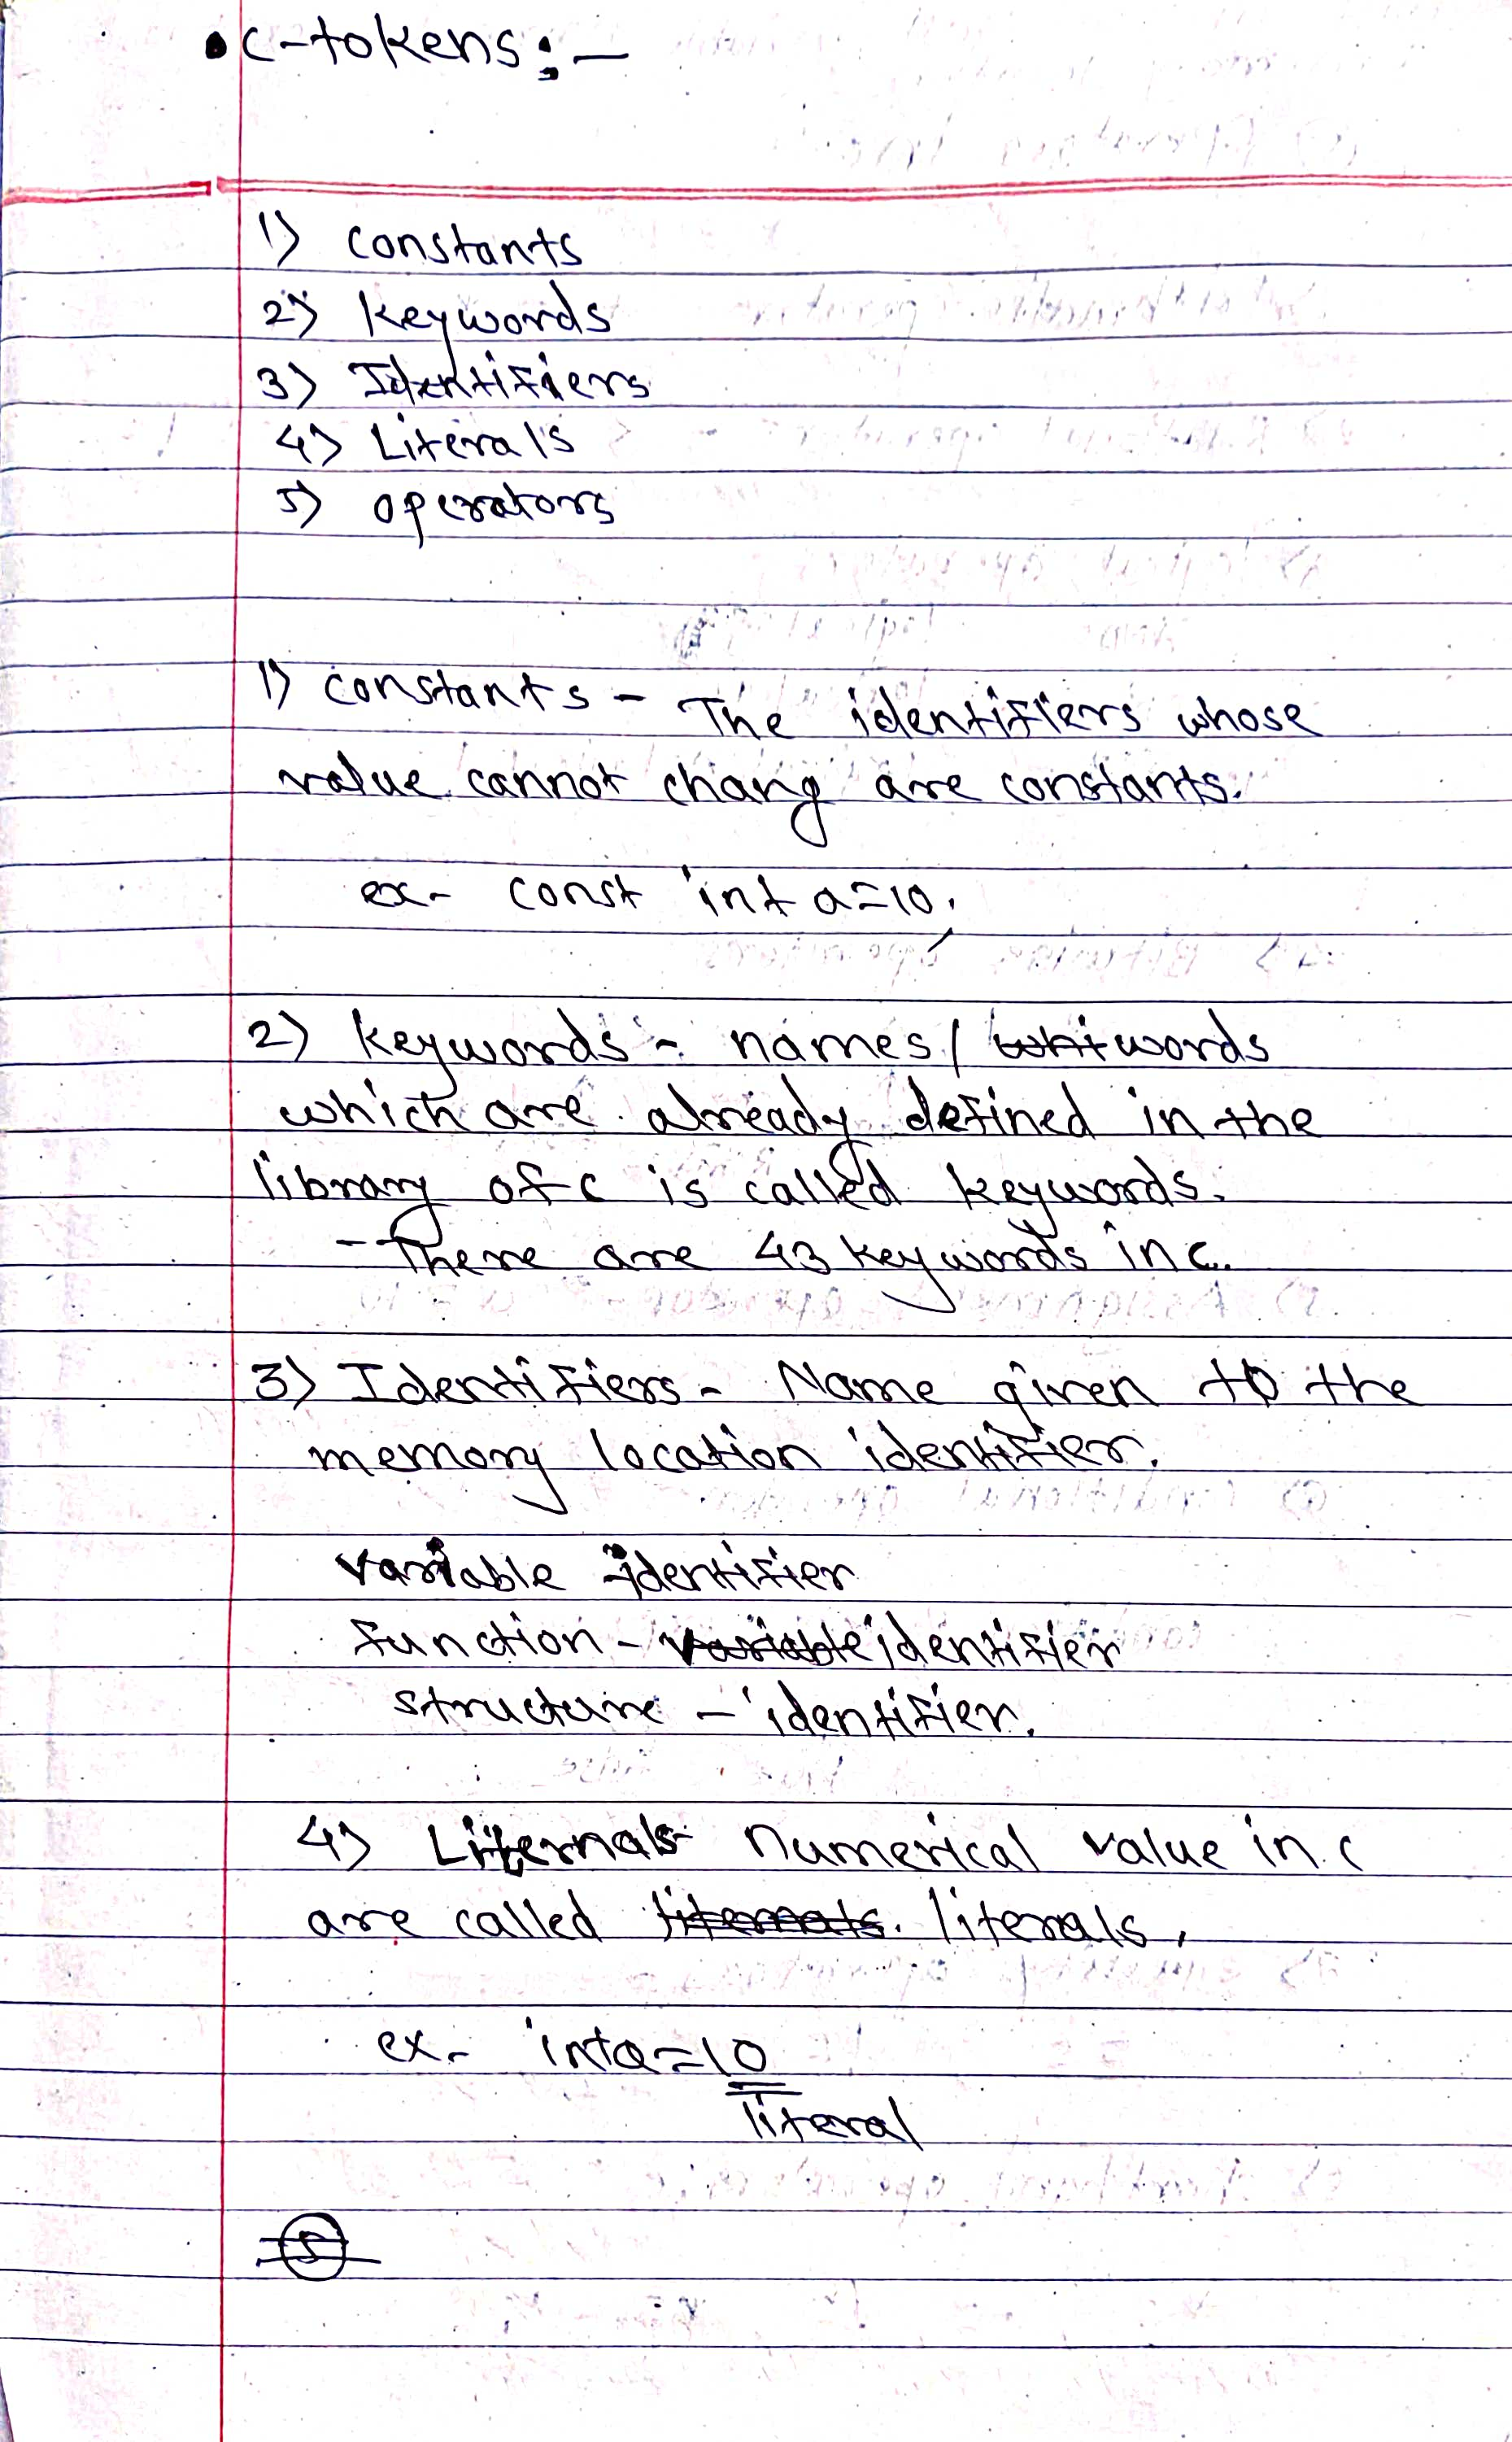 • C-tokens:-
1) constants
2) keywords
3) Identifiers
4) Literals
5) operators
1) constants - The identifiers whose
value cannot chang are constants.
ex- const int a=10;
2) keywords - names / words
which are already defined in the
library of c is called keywords.
- There are 43 keywords in c.
3) Identifiers - Name given to the
memory location identifier.
variable identifier
function - identifier
structure - identifier.
4) Liternals - numerical value in c
are called literals.
ex- int a=10
literal
5